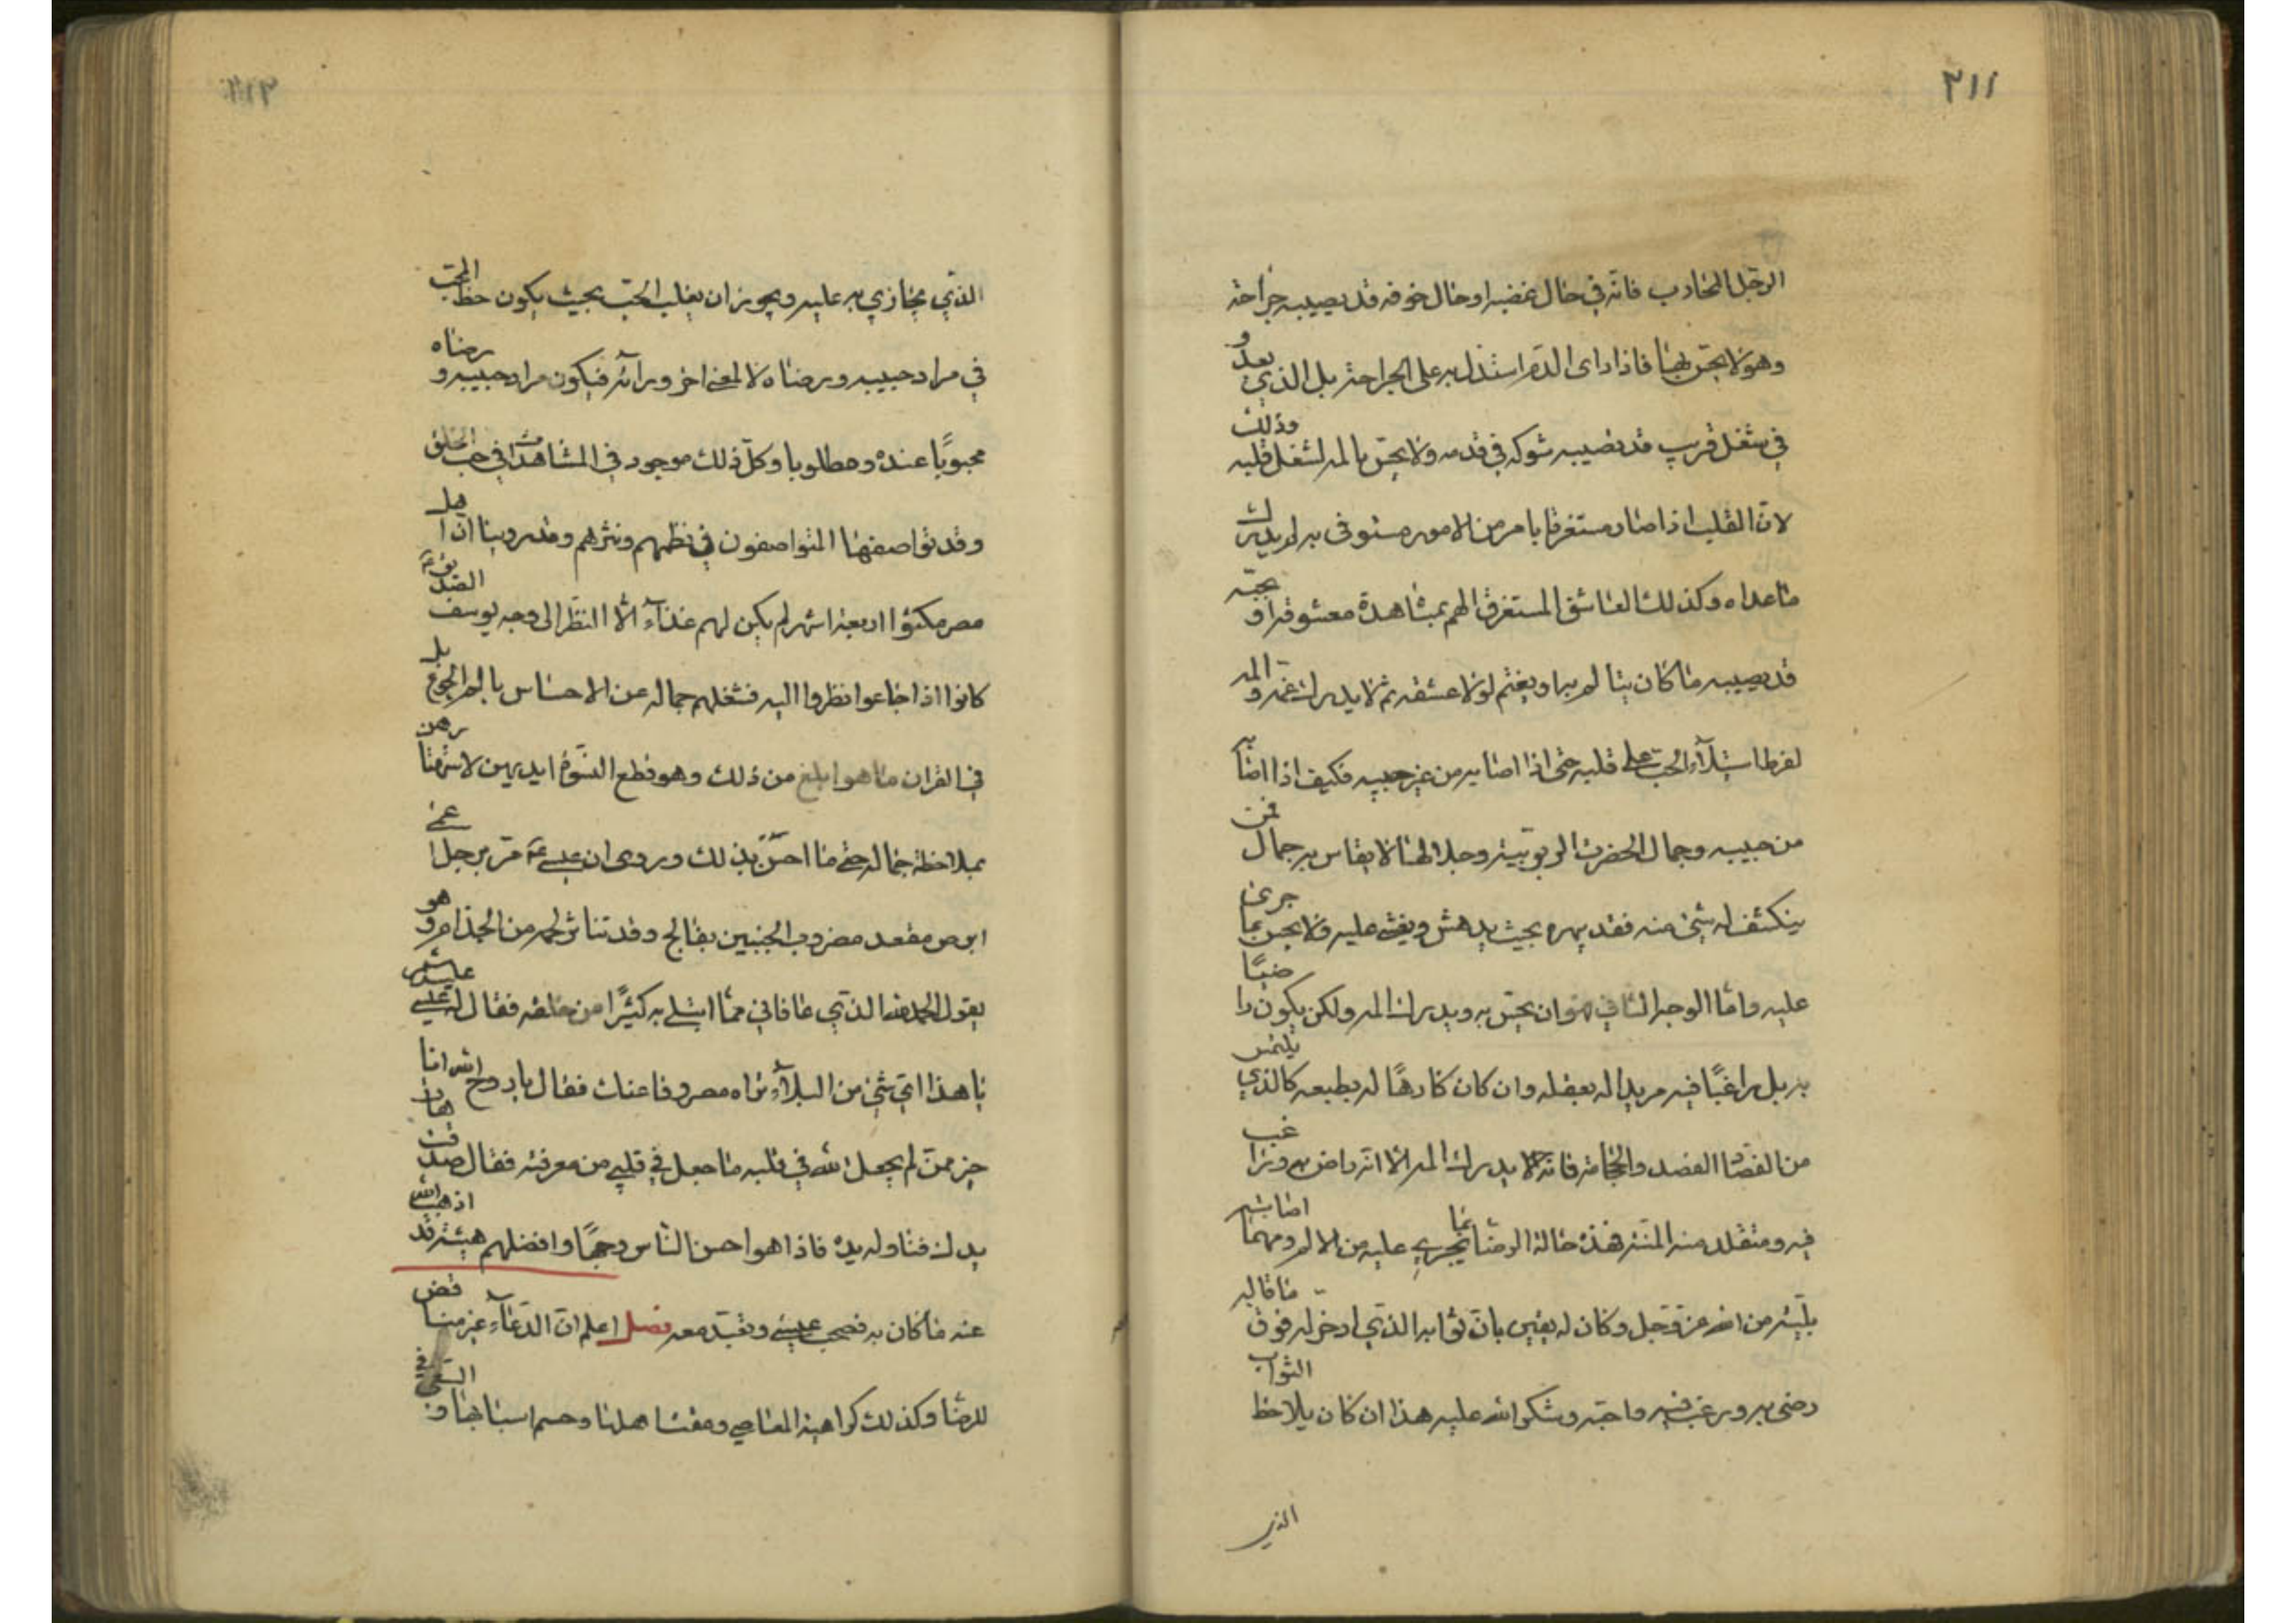 ٣١١
الرّجل المحارب فانّه في حال غضبه او حال خوفه قد يصيبه جراحة
وهو لا يحسّ بها فاذا راى الدّم استدل به على الجراحة بل الذي يعدو
في شغل قريب قد يصيبه شوكه في قدمه ولا يحسّ بالمه لشغل قلبه وذلك
لانّ القلب اذا صار مستغرقا بامر من الامور مستوفى به لم يدرك
ما عداه وكذلك العاشق المستغرق الهم بمشاهدة معشوقه او بحبّه
قد يصيبه ما كان يتالم به او يغتم لولا عشقه ثم لا يدرك غمّه و المه
لفرط استيلاء الحب على قلبه حتى اذا اصابه من غير حبيبه فكيف اذا اصابه
من حبيبه وجمال الحضرت الربوبيّة وجلالها لا يقاس به جمال فمن
ينكشف له شئ منه فقد يبهره بحيث يدهش ويغشى عليه ولا يحس بما جرى
عليه وامّا الوجه الثاني هو ان يحسّ به ويدرك المه ولكن يكون راضيًا
به بل راغبًا فيه مريدا له بعقله وان كان كارهًا له بطبعه كالذي يلتمس
من الفصّاد الفصد والحجامة فانّه لا يدرك المه الّا انّه راض به وراغب
فيه ومتقلد منه المنّة فهذه حالة الرضا بما يجري عليه من الالم ومهما اصابته
بليّة من الله عزّ وجل وكان له يقين بانّ ثوابه الذي ادخر له فوق ما فاته
رضى به ورغب فيه واحبّه وشكر الله عليه هذا ان كان يلاحظ الثواب
الذي
الذي يجازي به عليه ويجوز ان يغلب الحبّ بحيث يكون حظ المحبّ
في مراد حبيبه ورضاه لا لمعنى اخر ورآئه فيكون مراد حبيبه و رضاه
محبوبًا عنده ومطلوبا وكلّ ذلك موجود في المشاهدات في حب الخلق
وقد تواصفها المتواصفون في نظمهم ونثرهم وقد روينا انّ اهل
مصر مكثوا اربعة اشهر لم يكن لهم غذآء الّا النظر الى وجه يوسف الصّديق ع
كانوا اذا جاعوا نظروا اليه فشغلهم جماله عن الاحساس بالم الجوع بل
في القران ما هو ابلغ من ذلك وهو قطع النسّوة ايديهن لاستهتارهن
بملاحظة جماله حتى ما احسّنّ بذلك وروى ان عيسى ع مرّ برجل اعمى
ابرص مقعد مضروب الجنبين بفالج وقد تناثر لحمه من الجذام وهو
يقول الحمد لله الذي عافاني ممّا ابتلى به كثيرًا من خلقه فقال له عيسى عليه السلام
يا هذا اىّ شئ من البلاء تراه مصروفا عنك فقال يا روح الله انا
خير ممّن لم يجعل الله في قلبه ما جعل في قلبي من معرفته فقال صدقت هات
يدك فناوله يده فاذا هو احسن النّاس وجهًا وافضلهم هيئة قد اذهب الله
عنه ما كان به فصحب عيسى وتعبّد معه فصل اعلم انّ الدّعاء غير مناقض
للرضا وكذلك كراهية المعاصي ومقت اهلها وحسم اسبابها و السّعي في